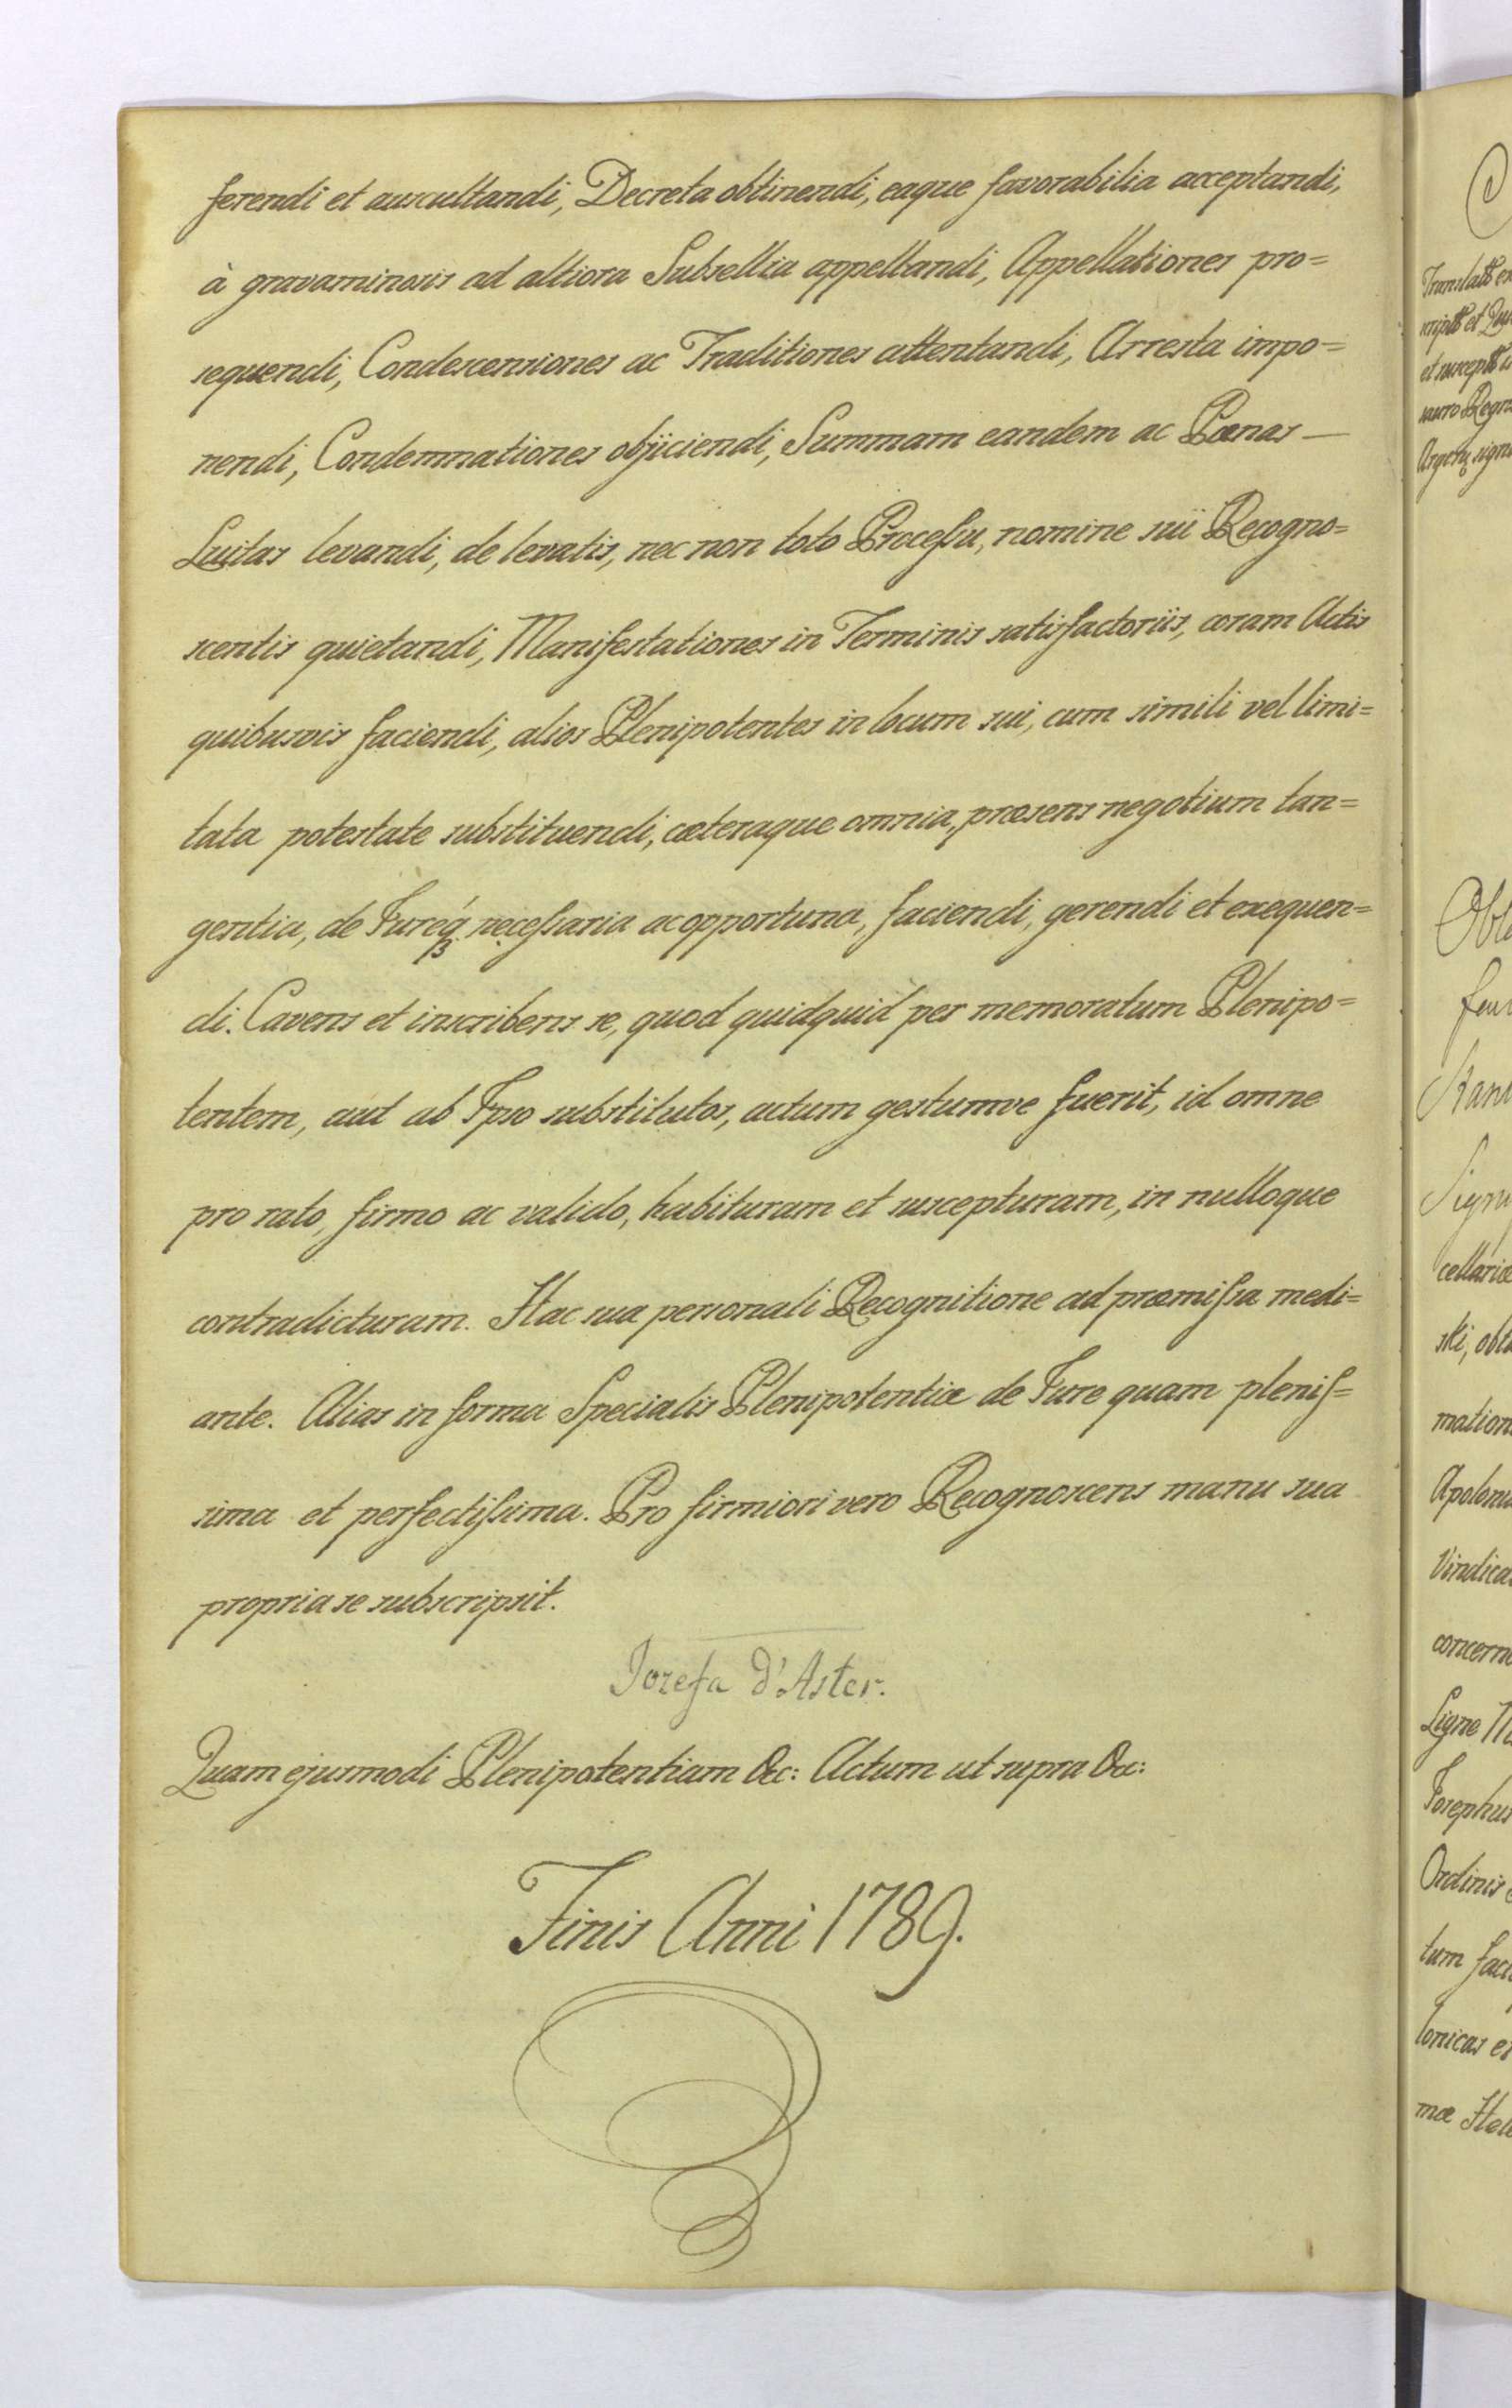 ferendi et auscultandi, Decreta obtinendi, eaque favorabilia acceptandi,
à gravaminosis ad altiora Subsellia appellandi, Appellationes pro=
sequendi, Condescensiones ac Traditiones attentandi, Arresta impo=
nendi, Condemnationes objiciendi, Summam eandem ac Pœnas —
Luitas levandi, de levatis, nec non toto Processu, nomine sui Recogno=
scentis quietandi, Manifestationes in Terminis satisfactoriis, coram Actis
quibusvis faciendi, alios Plenipotentes in locum sui, cum simili vel limi=
tata potestate substituendi, cæteraque omnia, præsens negotium tan=
gentia, de Jureq́ necessaria ac opportuna, faciendi, gerendi et exequen=
di. Cavens et inscribens se, quod quidquid per memoratum Plenipo=
tentem, aut ab Ipso substitutos, actum gestumve fuerit, id omne
pro rato, firmo ac valido, habituram et suscepturam, in nulloque
contradicturam. Hac sua personali Recognitione ad præmissa medi=
ante. Alias in forma Specialis Plenipotentiæ de Jure quam plenis=
sima et perfectissima. Pro firmiori vero Recognoscens manu sua
propria se subscripsit.
Jozefa d'Aster.
Quam ejusmodi Plenipotentiam &c: Actum ut supra &c:
Finis Anni 1789.
cellariæ
ski,
Ligne
Josephus
Ordinis
tum
mæ